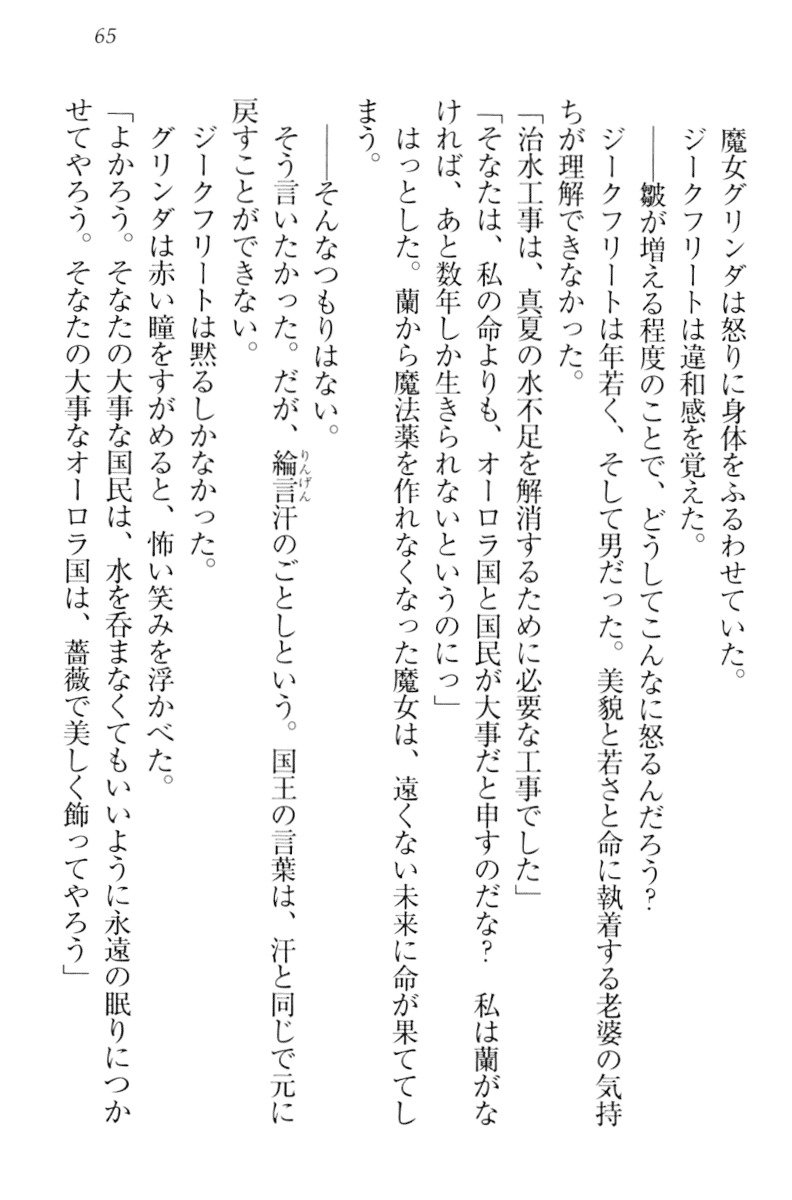 65
魔女グリンダは怒りに身体をふるわせていた。
ジークフリートは違和感を覚えた。
――皺が増える程度のことで、どうしてこんなに怒るんだろう?
ジークフリートは年若く、そして男だった。美貌と若さと命に執着する老婆の気持
ちが理解できなかった。
「治水工事は、真夏の水不足を解消するために必要な工事でした」
「そなたは、私の命よりも、オーロラ国と国民が大事だと申すのだな? 私は蘭がな
ければ、あと数年しか生きられないというのにっ」
はっとした。蘭から魔法薬を作れなくなった魔女は、遠くない未来に命が果ててし
まう。
――そんなつもりはない。
そう言いたかった。だが、綸言汗のごとしという。国王の言葉は、汗と同じで元に
りんげん
戻すことができない。
ジークフリートは黙るしかなかった。
グリンダは赤い瞳をすがめると、怖い笑みを浮かべた。
「よかろう。そなたの大事な国民は、水を呑まなくてもいいように永遠の眠りにつか
せてやろう。そなたの大事なオーロラ国は、薔薇で美しく飾ってやろう」